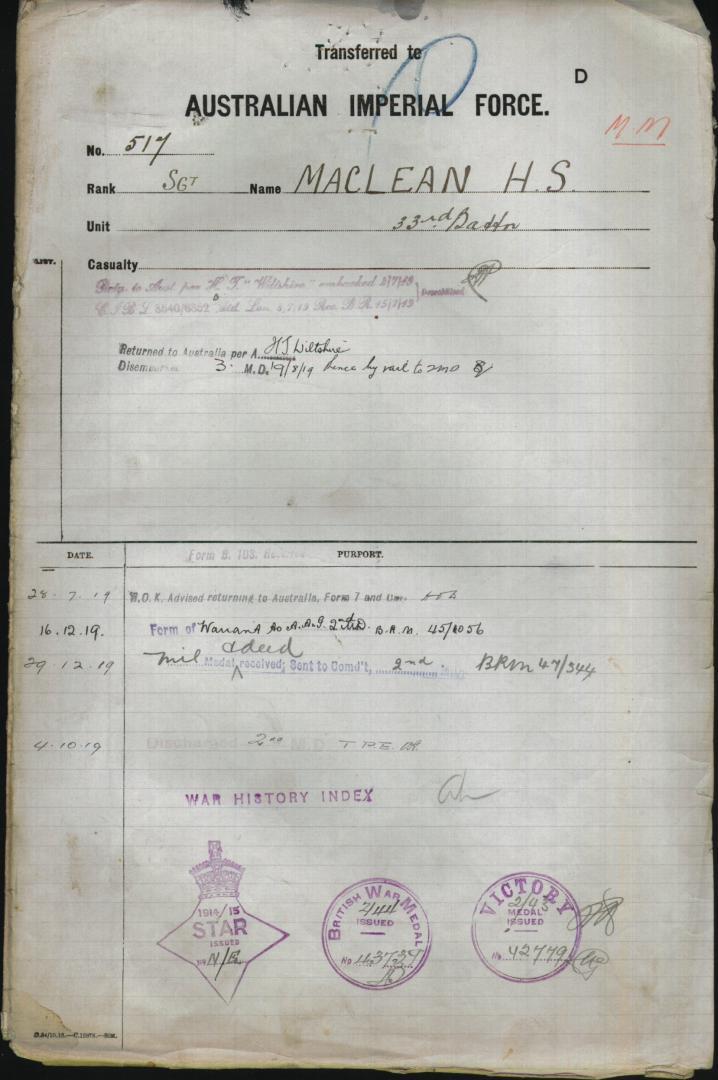 Transferred to
D
AUSTRALIAN IMPERIAL FORCE.
M.M
No. 517
Rank SGT Name MACLEAN H.S.
Unit 33rd Battn
LIST. Casualty
Rtg. to Aust. per H.T. "Wiltshire" embarked
C.I.B.L. 8540/6852
Returned to Australia per A. HT Wiltshire
3. M.D. 19/8/19 hence by rail to 2MD
DATE. Form B. 103. PURPORT.
28.7.19 N.O.K. Advised returning to Australia, Form 7 and
16.12.19. Form of Warrant to A.A.G. 2nd M.D. B.R.M. 45/1056
Mil & deed
29.12.19 Medal received; Sent to Comd't, 2nd BRM 47/344
4.10.19 Discharged 2nd M.D. T.P.E.
WAR HISTORY INDEX
1914/15
STAR
ISSUED
N/E
BRITISH WAR MEDAL
2/44
ISSUED
No 43739
VICTORY
2/43
MEDAL
ISSUED
No. 42779